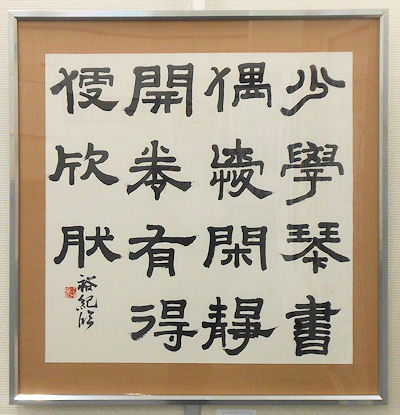 少學琴書
偶愛閑靜
開卷有得
便欣肰
裕紀臨